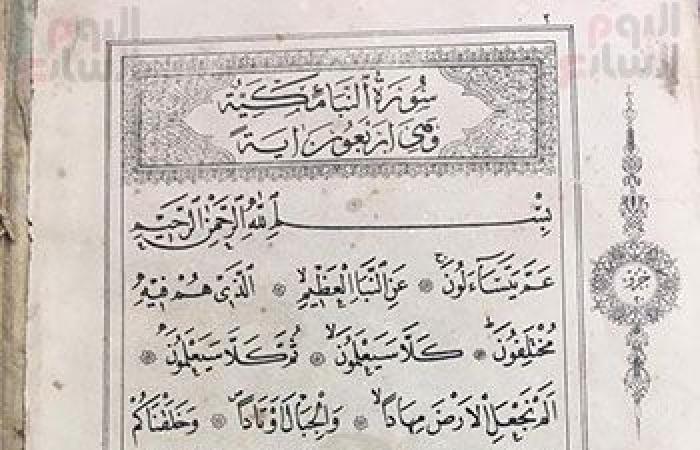 اليوم السابع
اليوم السابع
٢
سُورَةُ النَّبَأِ مَكِّيَّةٌ
وَهِيَ اَرْبَعُونَ اٰيَةً
بِسْــــمِ اللّٰهِ الرَّحْمٰنِ الرَّحِيمِ
عَمَّ يَتَسَآءَلُونَ ۞ عَنِ النَّبَأِ الْعَظِيمِ ۞ الَّذِى هُمْ فِيهِ
مُخْتَلِفُونَ ۞ كَلَّا سَيَعْلَمُونَ ۞ ثُمَّ كَلَّا سَيَعْلَمُونَ ۞
اَلَمْ نَجْعَلِ الْاَرْضَ مِهَادًا ۞ وَالْجِبَالَ اَوْتَادًا ۞ وَخَلَقْنَاكُمْ
جزؤ